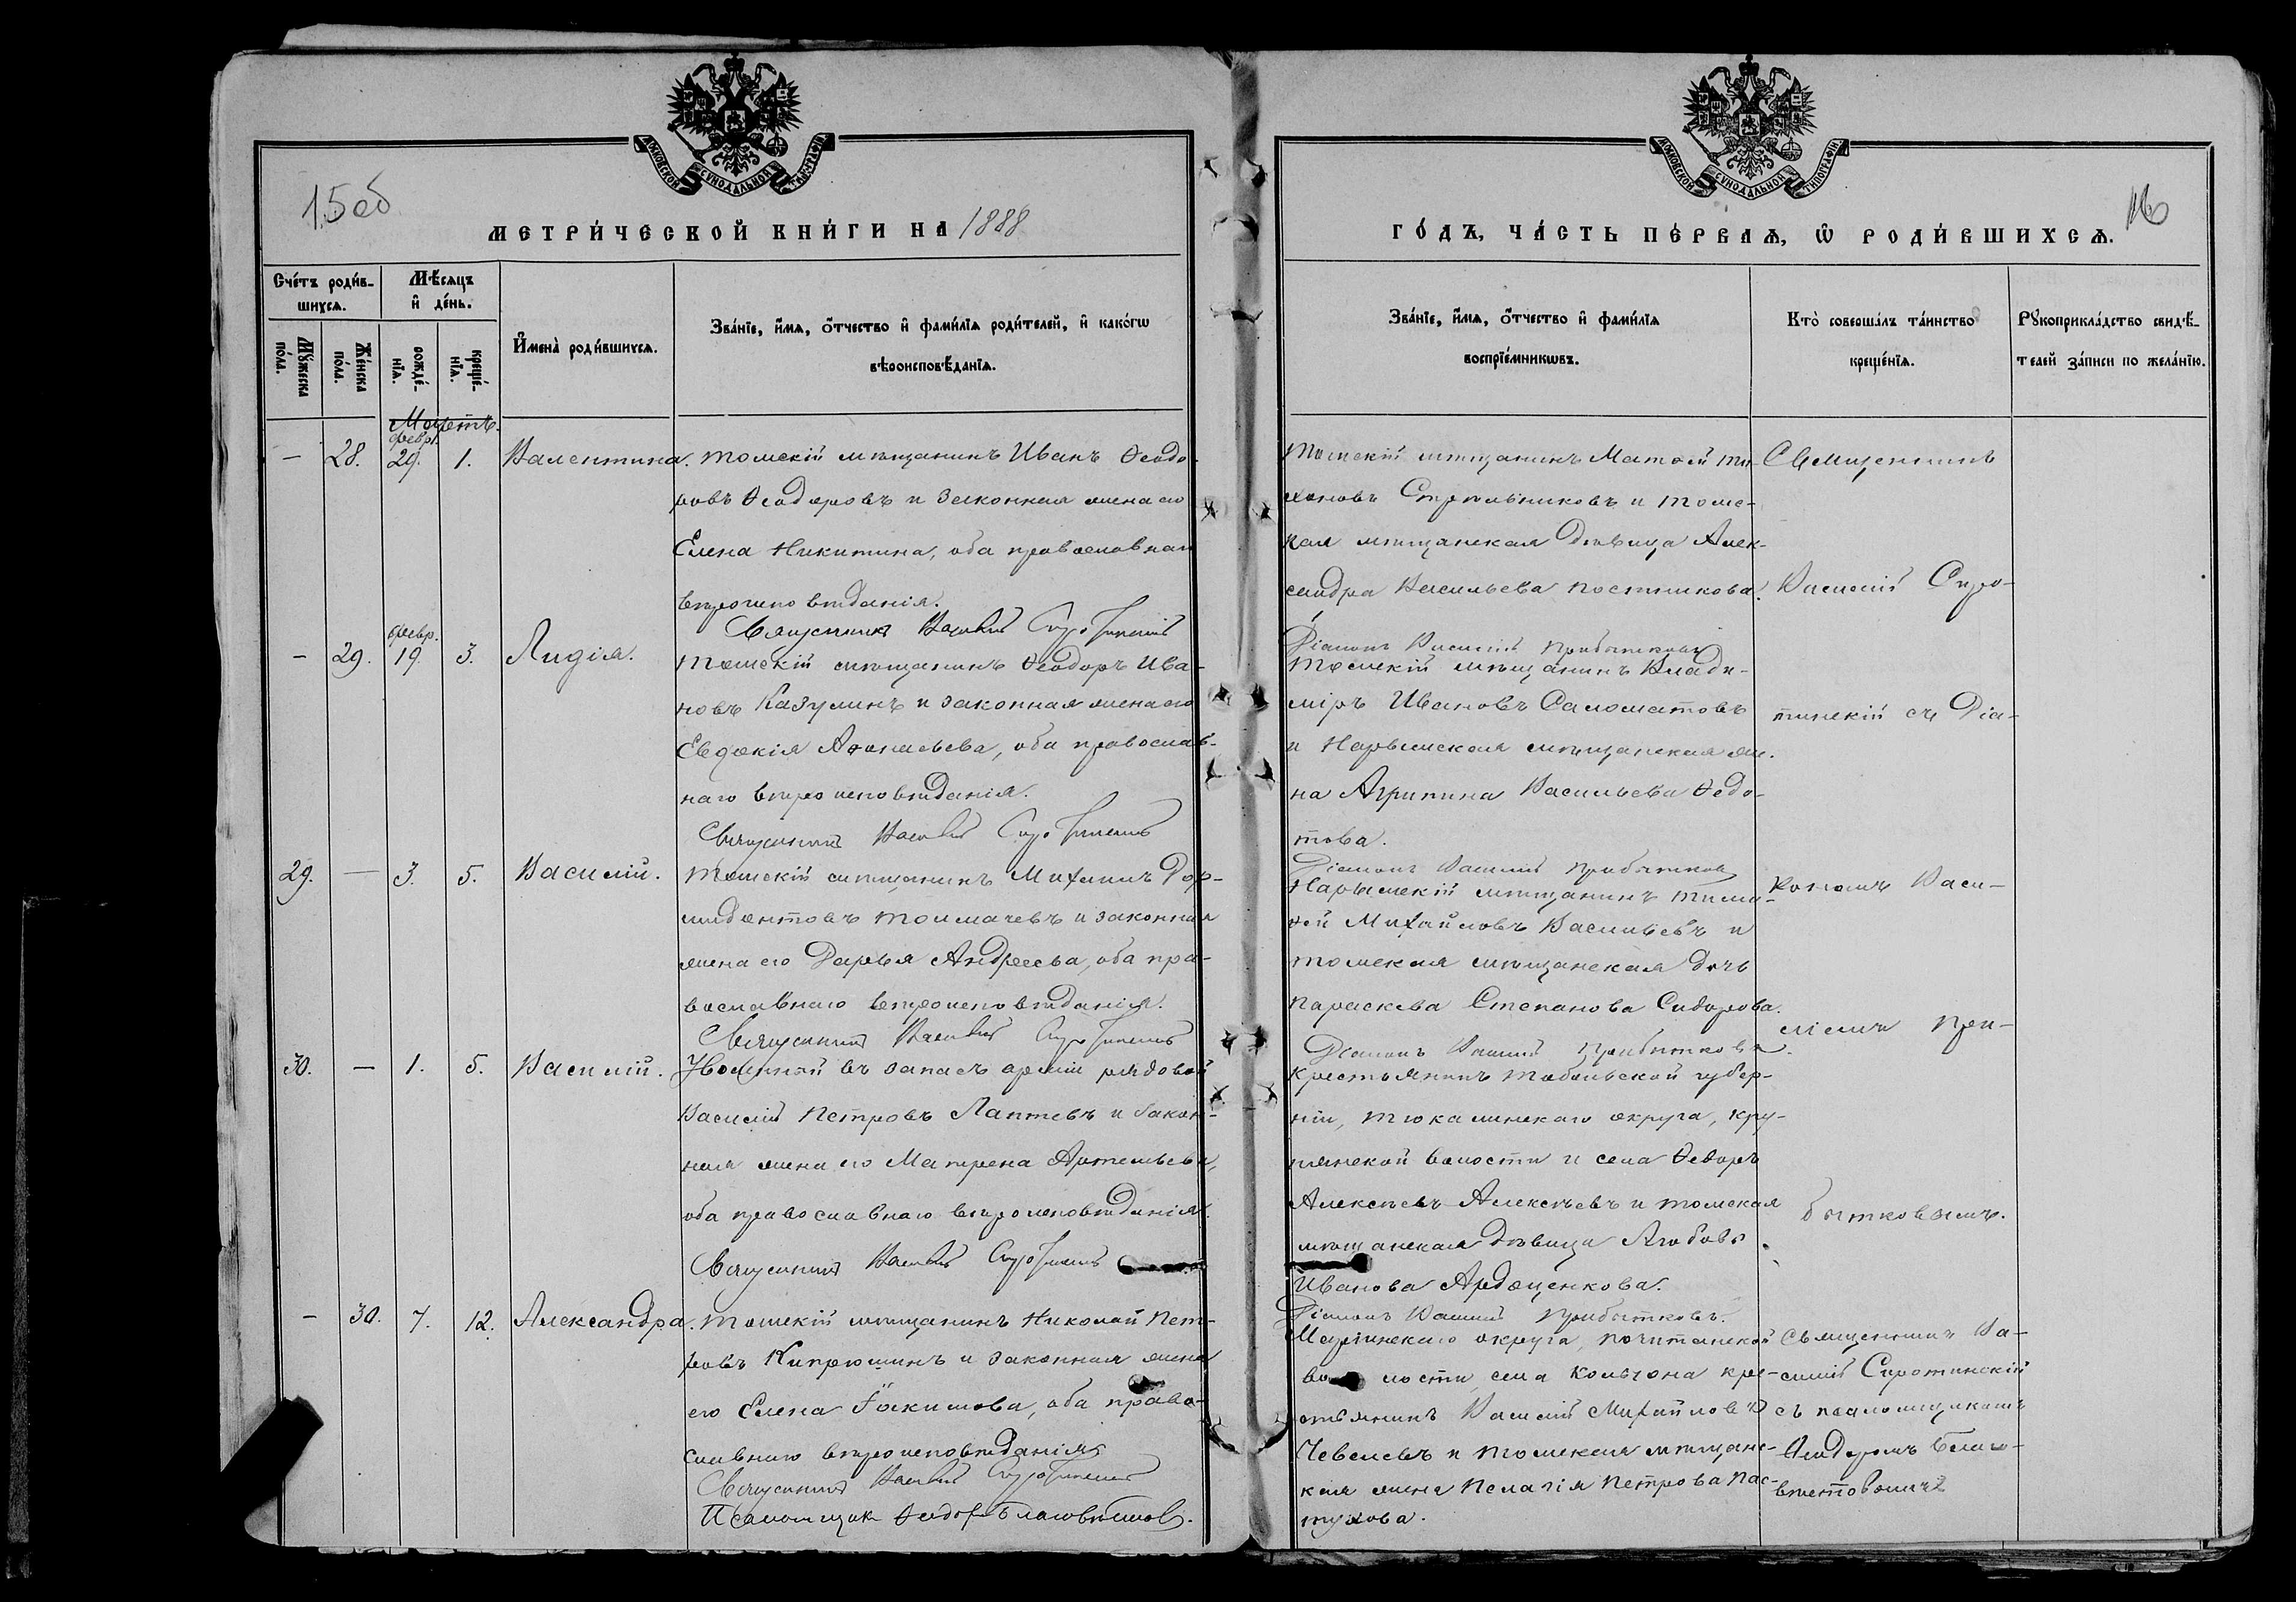 МОСКОВСКОЙ СѴНОДАЛЬНОЙ ТИПОГРАФІИ
15 об
МЕТРИ́ЧЕСКОЙ КНИ́ГИ НА 1888
Сче́тъ роди́в-
шихсѧ.
Мѣ́сѧцъ
и҆ де́нь.
Мꙋ́жеска
по́ла.
Же́нска
по́ла.
рожде́-
нїѧ.
креще́-
нїѧ.
И҆мена̀ роди́вшихсѧ.
Зва́нїе, и҆́мѧ, ѻ҆́тчество и҆ фами́лїѧ роди́телей, и҆ како́гѡ
вѣроисповѣ́данїѧ.
Мартъ.
– 28. февр. 29. 1. Валентина. Томскій мѣщанинъ Иванъ Ѳеодо-
ровъ Ѳеодоровъ и законная жена его
Елена Никитина, оба православнаго
вѣроисповѣданія.
Священникъ Василій Сиротинскій
– 29. февр. 19. 3. Лидія. Томскій мѣщанинъ Ѳеодоръ Ива-
новъ Казулинъ и законная жена его
Евдокія Аѳонасьева, оба православ-
наго вѣроисповѣданія.
Священникъ Василій Сиротинскій
29. – 3. 5. Василій. Томскій мѣщанинъ Михаилъ Дор-
мидонтовъ Толмачевъ и законная
жена его Дарья Андреева, оба пра-
вославнаго вѣроисповѣданія.
Священникъ Василій Сиротинскій
30. – 1. 5. Василій. Уволенный въ запасъ арміи рядовой
Василій Петровъ Лаптевъ и закон-
ная жена его Матрена Артемьева,
оба православнаго вѣроисповѣданія.
Священникъ Василій Сиротинскій
– 30. 7. 12. Александра. Томскій мѣщанинъ Николай Пет-
ровъ Кипрюшинъ и законная жена
его Елена Іакимова, оба право-
славнаго вѣроисповѣданія
Священникъ Василій Сиротинскій
Псаломщик Ѳеодоръ Благовѣстов.
МОСКОВСКОЙ СѴНОДАЛЬНОЙ ТИПОГРАФІИ
16
ГО́ДЪ, ЧА́СТЬ ПЕ́РВАѦ, Ѡ҆ РОДИ́ВШИХСѦ.
Зва́нїе, и҆́мѧ, ѻ҆́тчество и҆ фами́лїѧ
воспрїе́мникѡвъ.
Кто̀ соверша́лъ та́инство
креще́нїѧ.
Рꙋкоприкла́дство свидѣ́-
телей за́писи по жела́нїю.
Томскій мѣщанинъ Матѳей Ти-
хоновъ Стрѣльниковъ и томс-
кая мѣщанская дѣвица Алек-
сандра Васильева Постникова.
Діаконъ Василій Прибытковъ
Томскій мѣщанинъ Влади-
міръ Ивановъ Саломатовъ
и Нарымская мѣщанская же-
на Агрипина Васильева Ѳедо-
това.
Діаконъ Василій Прибытковъ
Нарымскій мѣщанинъ Тимо-
ѳей Михайловъ Васильевъ и
томская мѣщанская дочь
Параскева Степанова Сидорова.
Діаконъ Василій Прибытковъ.
Крестьянинъ Тобольской губер-
ніи, Тюкалинскаго округа, Кру-
тинской волости и села Ѳедоръ
Алексѣевъ Алексѣевъ и томская
мѣщанская дѣвица Любовь
Иванова Ардащенкова.
Діаконъ Василій Прибытковъ.
Маріинскаго округа, Почитанской
волости села Кольчона кре-
стьянинъ Василій Михайловъ
Чевелевъ и томская мѣщанс-
кая жена Пелагія Петрова Пас-
тухова.
Священникъ
Василій Сиро-
тинскій съ Діа-
кономъ Васи-
ліемъ При-
бытковымъ.
Священникъ Ва-
силій Сиротинскій
съ псаломщикомъ
Ѳеодоромъ Благо-
вѣстовымъ